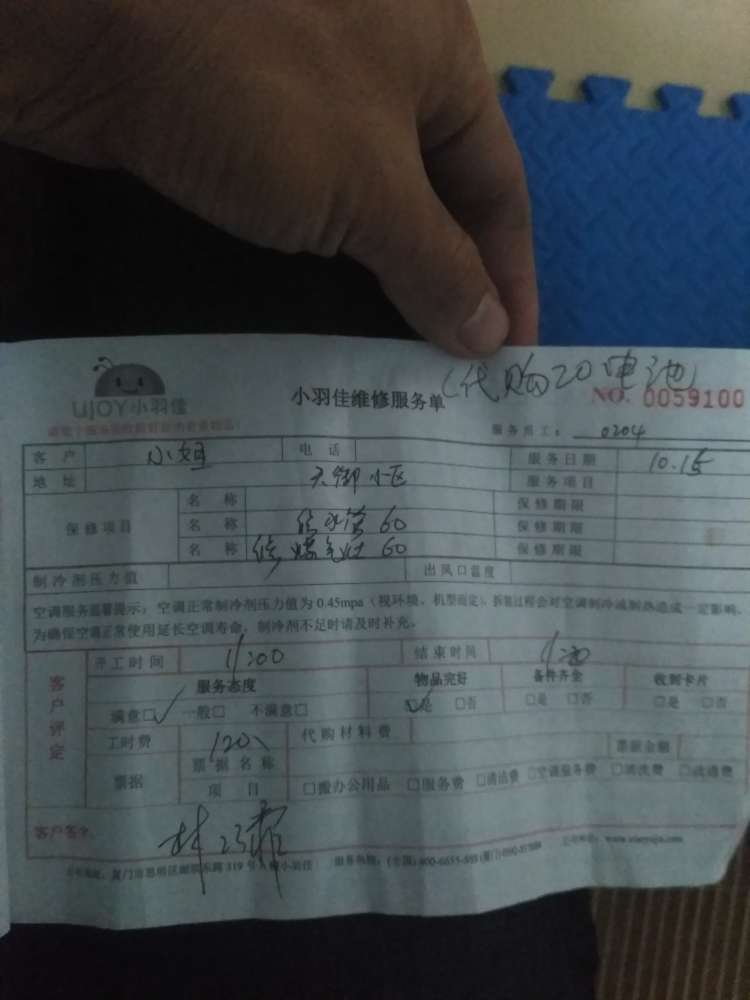 (代购20电池)
UJOY小羽佳 小羽佳维修服务单 NO. 0059100
服务员工: 0204
客户 小姐 电话 服务日期 10.15
地址 天御小区 服务项目
保修项目 名称 保修期限
名称 修水管 60 保修期限
名称 修煤气灶 60 保修期限
制冷剂压力值 出风口温度
空调服务温馨提示: 空调正常制冷剂压力值为 0.45mpa (视环境、机型而定), 拆装过程会对空调制冷或制热造成一定影响,
为确保空调正常使用延长空调寿命, 制冷剂不足时请及时补充。
客户评定
开工时间 11:00 结束时间
服务态度 物品完好 备件齐全 收到卡片
满意□✓ 一般□ 不满意□ ☑是 □否 □是 □否 □是 □否
工时费 120 代购材料费
票据 票据名称 票据金额
项目 □搬办公用品 □服务费 □清洁费 □空调服务费 □清洗费 □疏通费
客户签字
服务热线: (全国) 400-6655-885